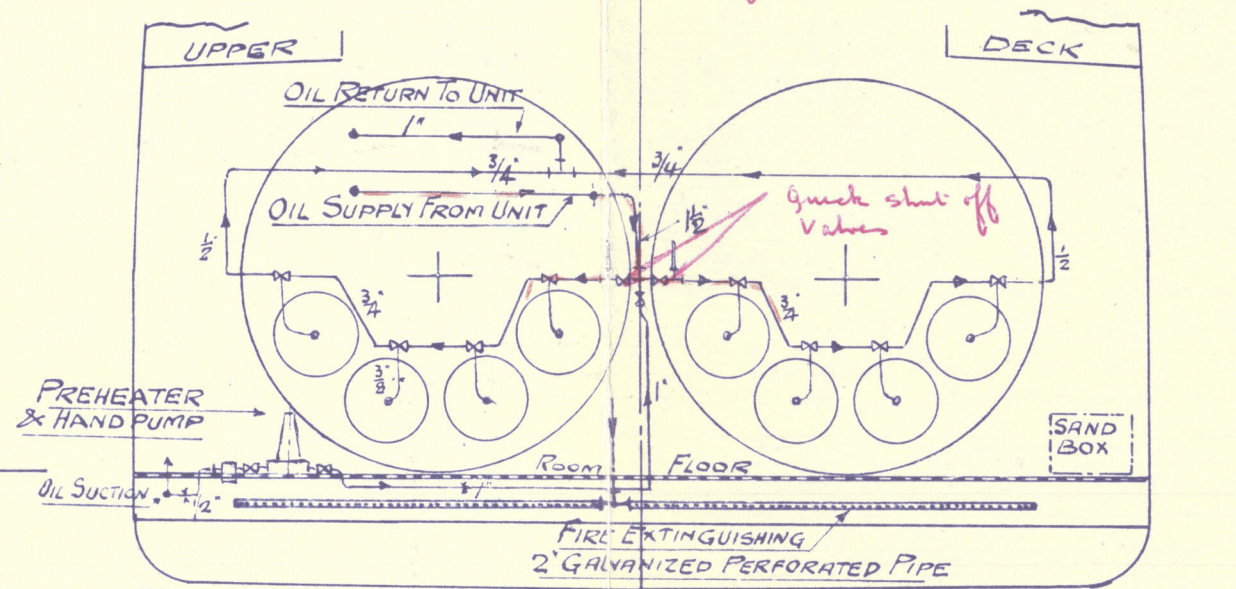 UPPER
DECK
OIL RETURN TO UNIT
1"
3/4"
3/4"
OIL SUPPLY FROM UNIT
1½"
Quick shut off
Valves
½"
½
3/4"
3/4"
3/8"
1"
PREHEATER
& HAND PUMP
SAND
BOX
ROOM FLOOR
OIL SUCTION
1½"
1"
FIRE EXTINGUISHING
2" GALVANIZED PERFORATED PIPE